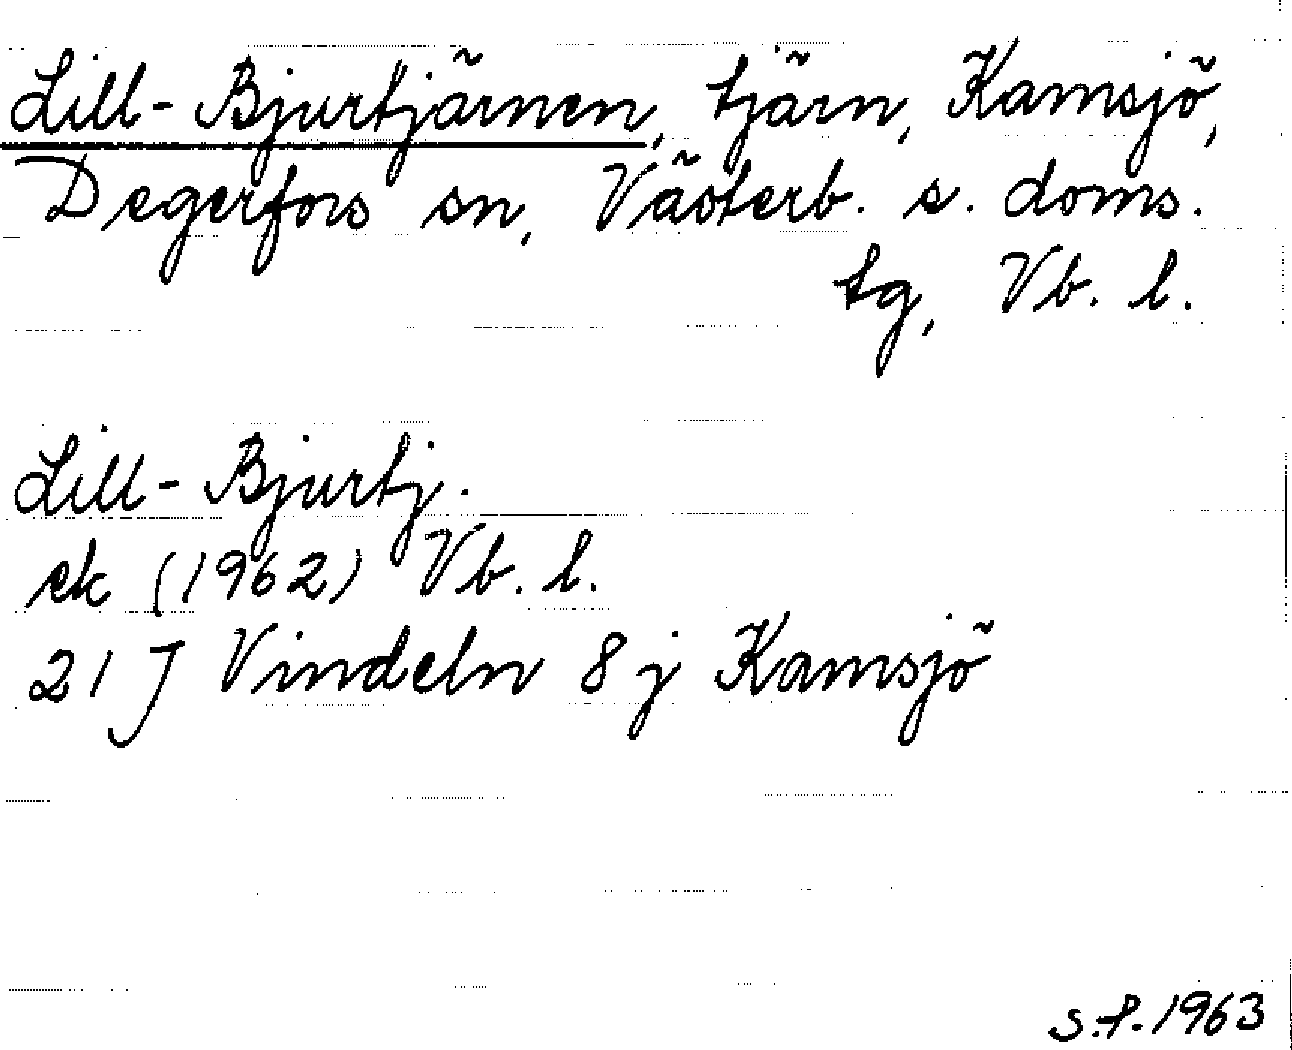 Lill-Bjurtjärnen, tjärn, Kamsjö,
Degerfors sn, Västerb. s. doms.
tg, Vb. l.
Lill-Bjurtj.
ek (1962) Vb. l.
21 J Vindeln 8 j Kamsjö
S.-f. 1963